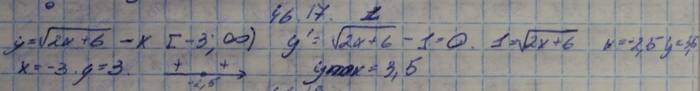 46.17. 1
y=√2x+6 -x [-3; ∞) y'=√2x+6 -1=0. 1=√2x+6 x=-2,5 y=3,5
x=-3. y=3. + + -2,5 ymax=3,5